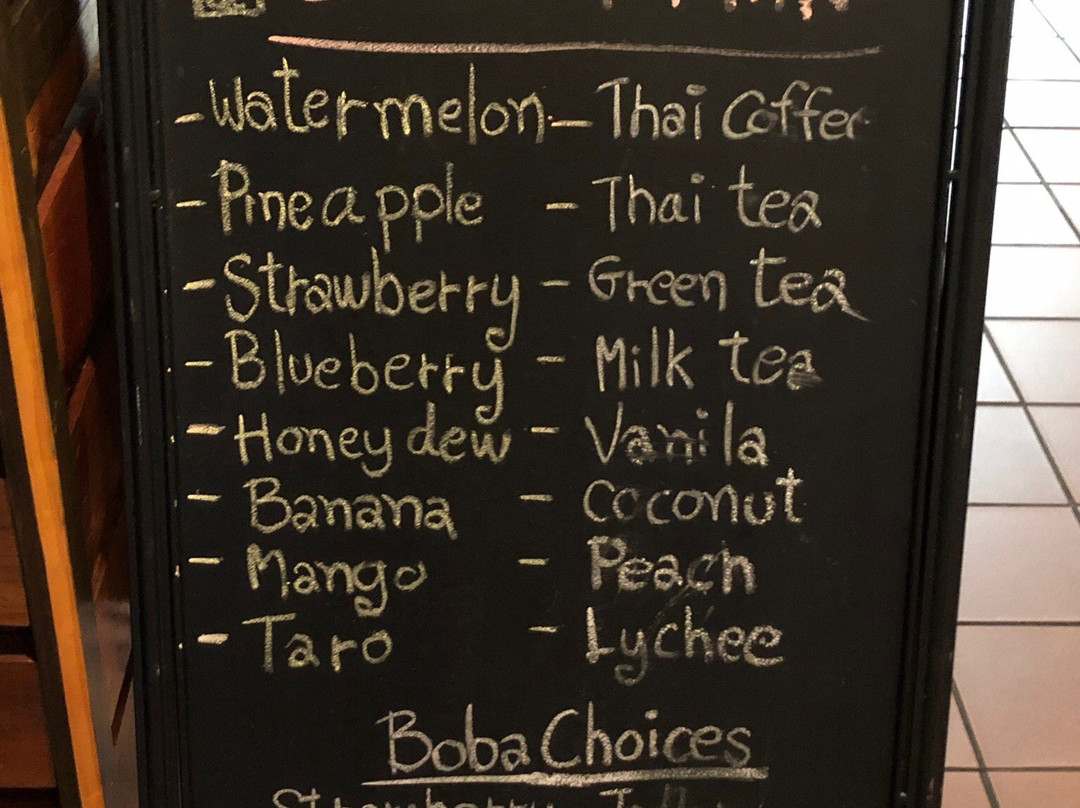 - Watermelon - Thai Coffee
- Pineapple - Thai tea
- Strawberry - Green tea
- Blueberry - Milk tea
- Honeydew - Vanila
- Banana - Coconut
- Mango - Peach
- Taro - Lychee
Boba Choices
Strawberry